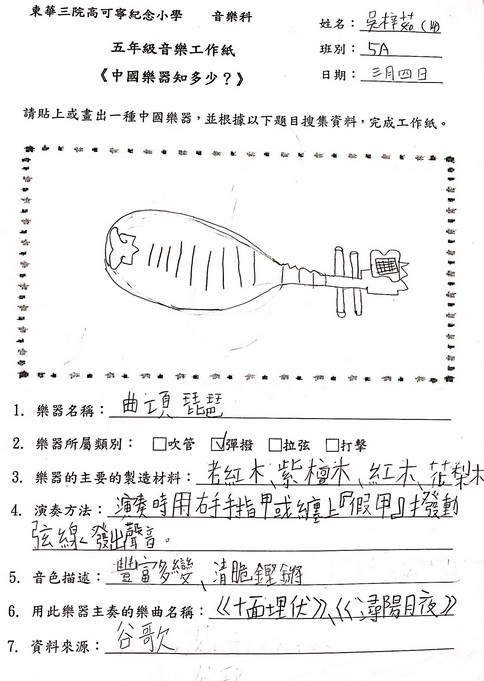 東華三院高可寧紀念小學 音樂科
姓名：吳梓茹(14)
五年級音樂工作紙
班別：5A
《中國樂器知多少？》
日期：三月四日
請貼上或畫出一種中國樂器，並根據以下題目搜集資料，完成工作紙。
1. 樂器名稱：曲項琵琶
2. 樂器所屬類別：□吹管 ☑彈撥 □拉弦 □打擊
3. 樂器的主要的製造材料：老紅木、紫檀木、紅木、花梨木
4. 演奏方法：演奏時用右手手指甲或纏上『假甲』撥動
弦線，發出聲音。
5. 音色描述：豐富多變、清脆鏗鏘
6. 用此樂器主奏的樂曲名稱：《十面埋伏》、《潯陽月夜》
7. 資料來源：谷歌